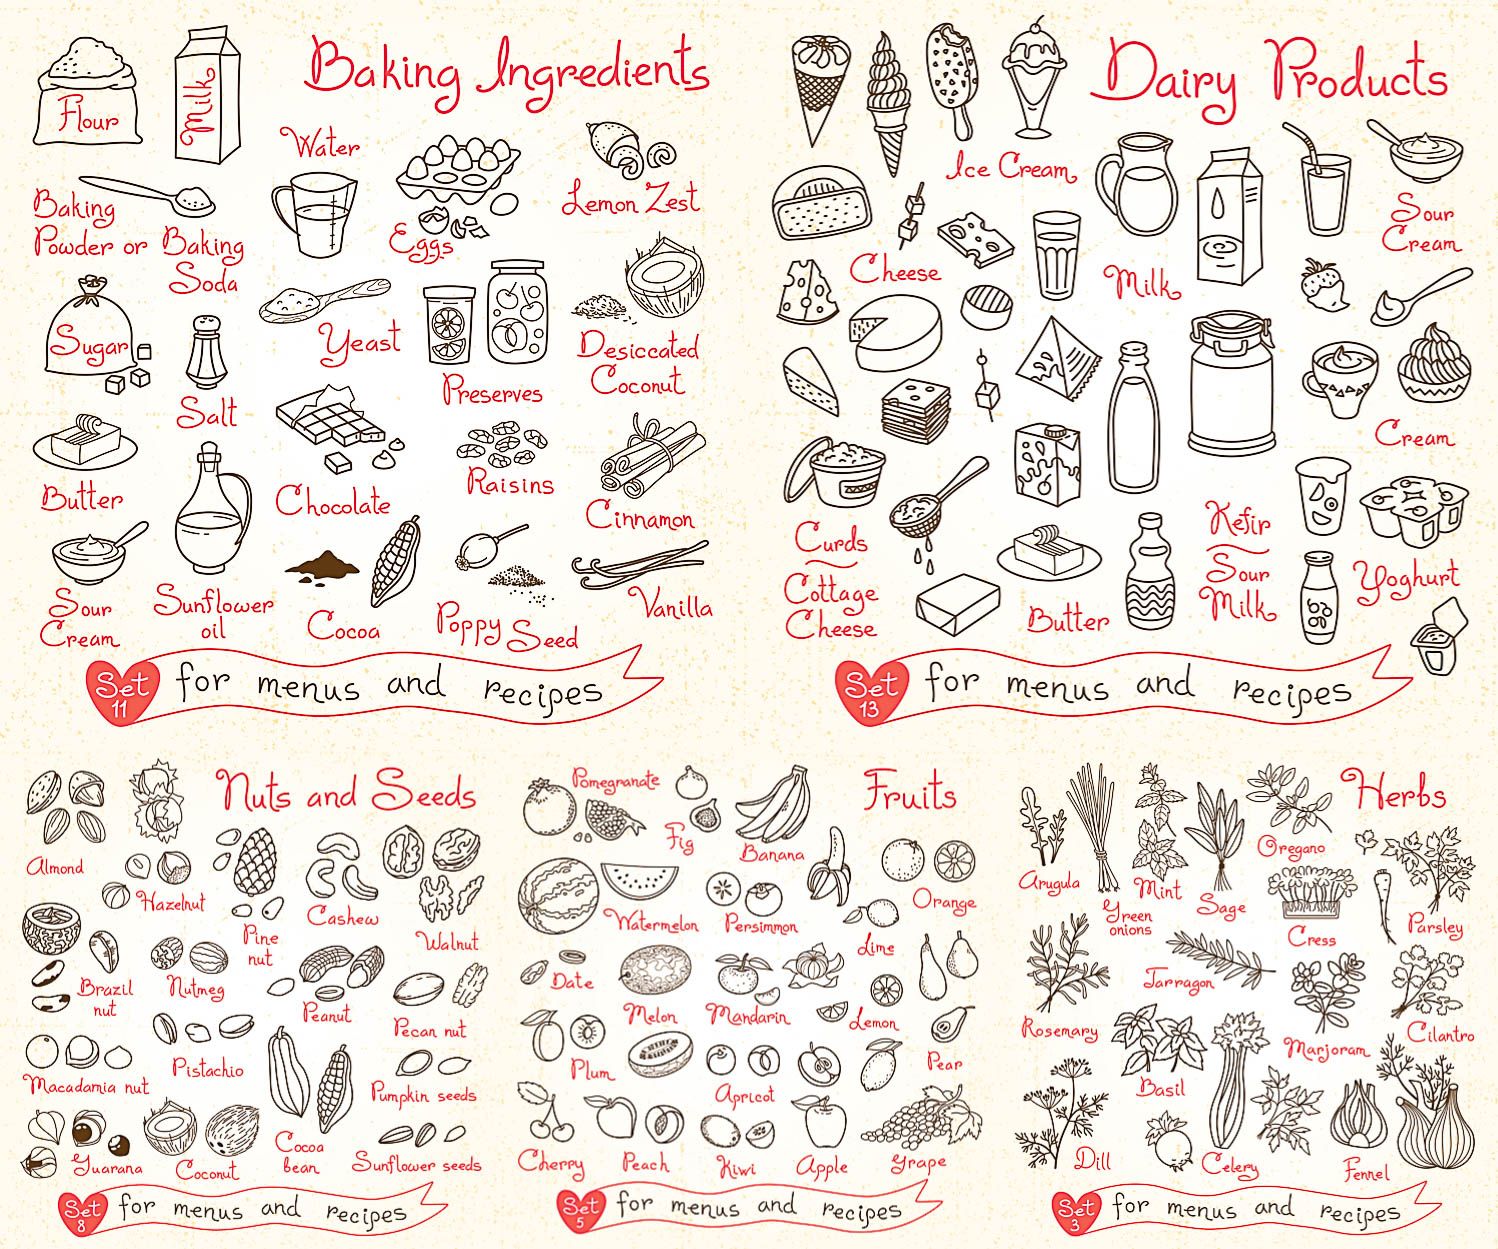 Baking Ingredients
Flour
Milk
Water
Lemon Zest
Baking
Powder or Baking
Soda
Eggs
Sugar
Salt
Yeast
Preserves
Desiccated
Coconut
Butter
Chocolate
Raisins
Cinnamon
Sour
Cream
Sunflower
oil
Cocoa
Poppy Seed
Vanilla
Set
11
for menus and recipes
Dairy Products
Ice Cream
Sour
Cream
Cheese
Milk
Cream
Curds
Cottage
Cheese
Butter
Kefir
Sour
Milk
Yoghurt
Set
13
for menus and recipes
Nuts and Seeds
Almond
Hazelnut
Pine
nut
Cashew
Walnut
Brazil
nut
Nutmeg
Peanut
Pecan nut
Macadamia nut
Pistachio
Pumpkin seeds
Guarana
Coconut
Cocoa
bean
Sunflower seeds
Set
8
for menus and recipes
Fruits
Pomegranate
Fig
Banana
Orange
Watermelon
Persimmon
Lime
Date
Melon
Mandarin
Lemon
Plum
Apricot
Pear
Cherry
Peach
Kiwi
Apple
Grape
Set
5
for menus and recipes
Herbs
Arugula
Green
onions
Mint
Sage
Oregano
Cress
Parsley
Rosemary
Tarragon
Marjoram
Cilantro
Basil
Dill
Celery
Fennel
Set
3
for menus and recipes